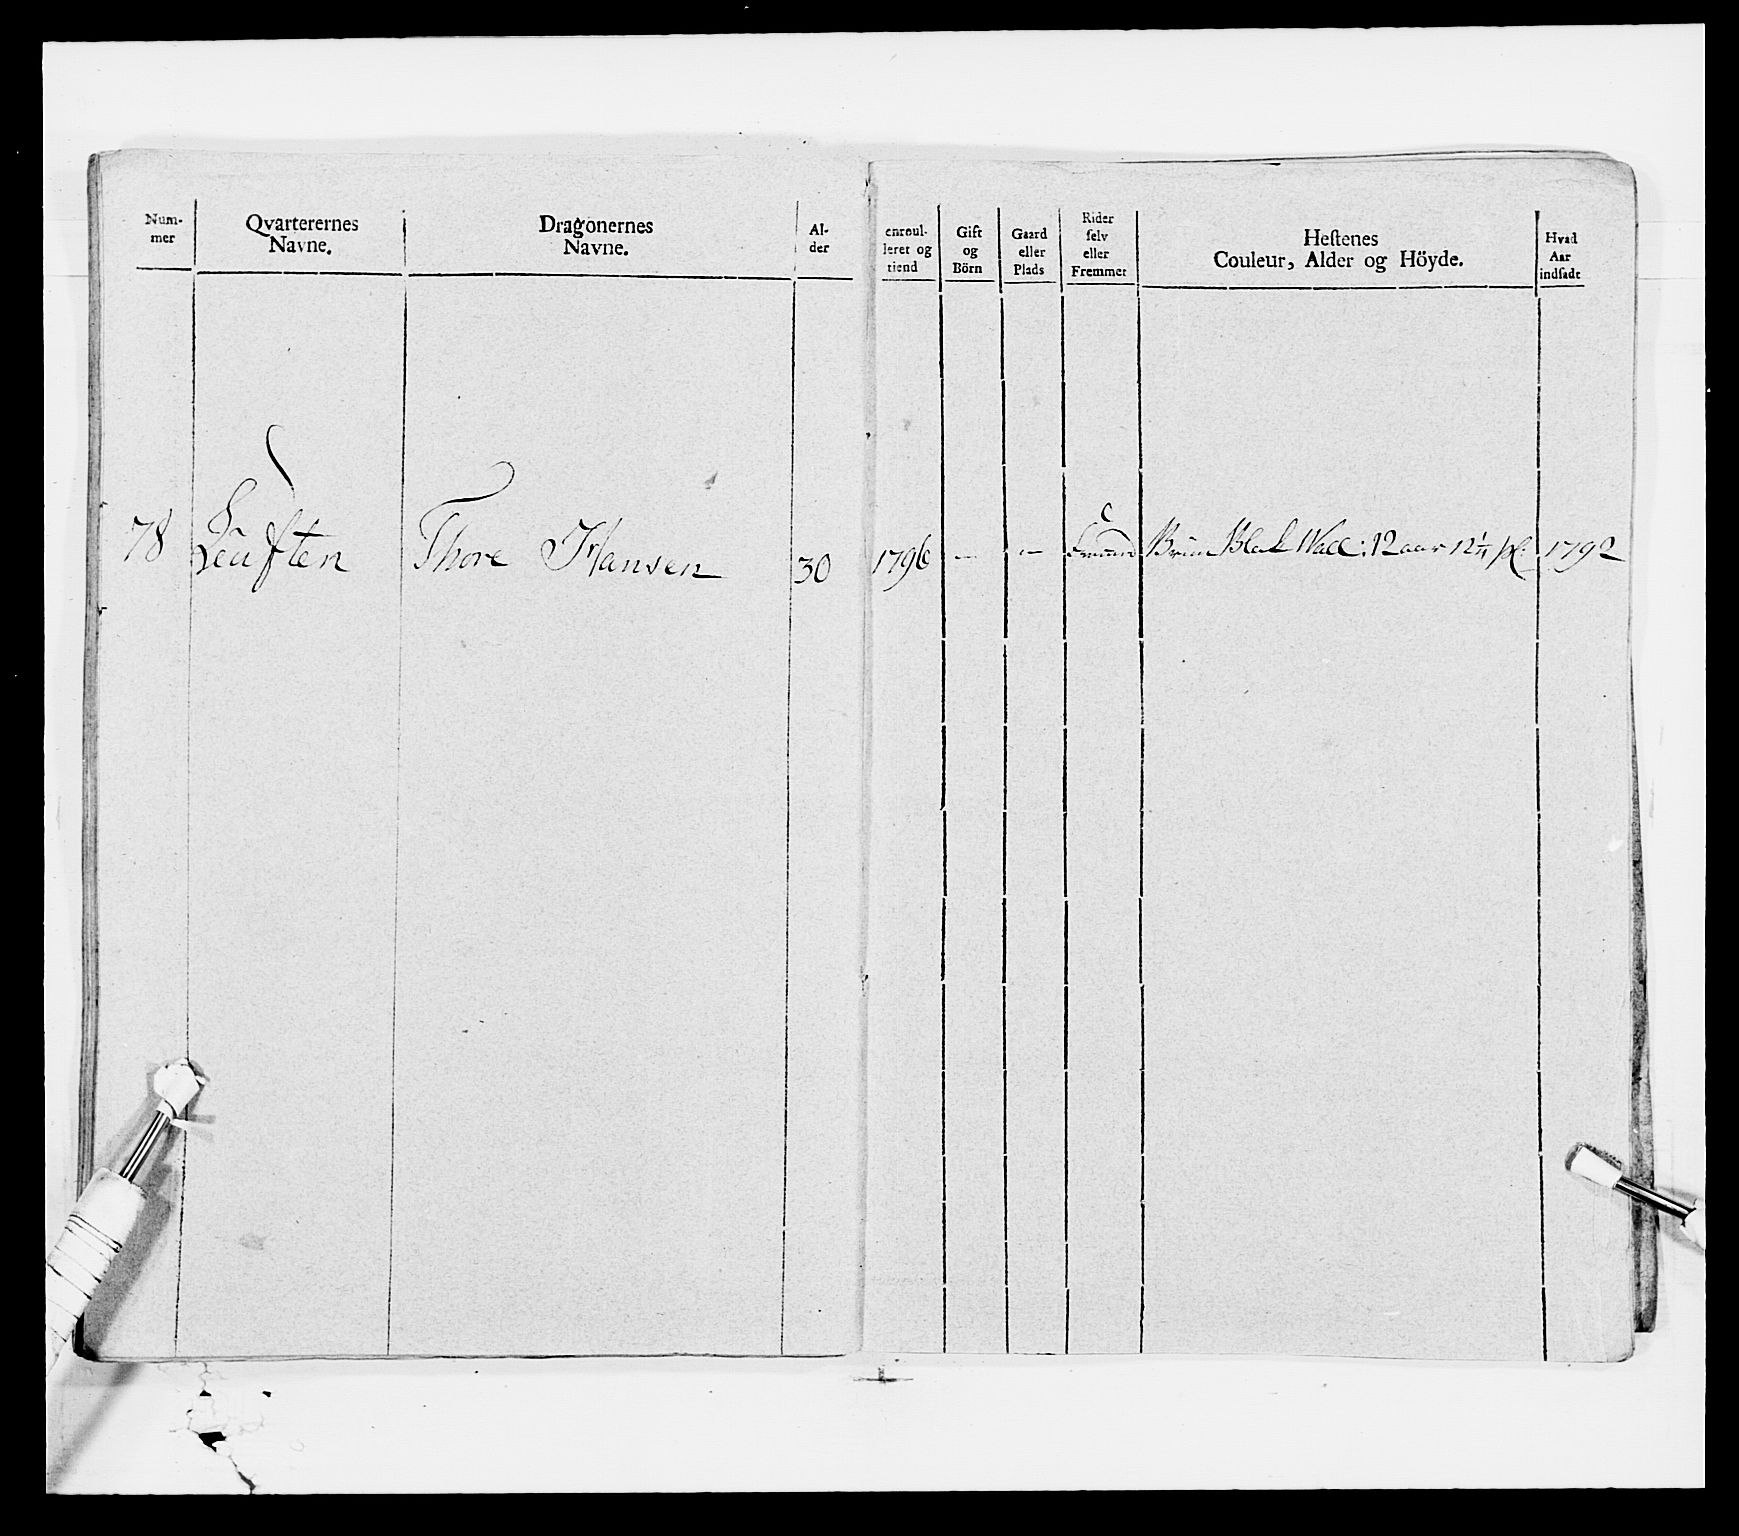 Num-
mer
Qvarterernes
Navne.
Dragonernes
Navne.
Al-
der
enroul-
leret og
tiend
Gift
og
Börn
Gaard
eller
Plads
Rider
selv
eller
Fremmet
Hestenes
Couleur, Alder og Höyde.
Hvad
Aar
indsadt
78 Thore Hansen 30 1796 — — Brun Blak Wall: 12 aar 1792